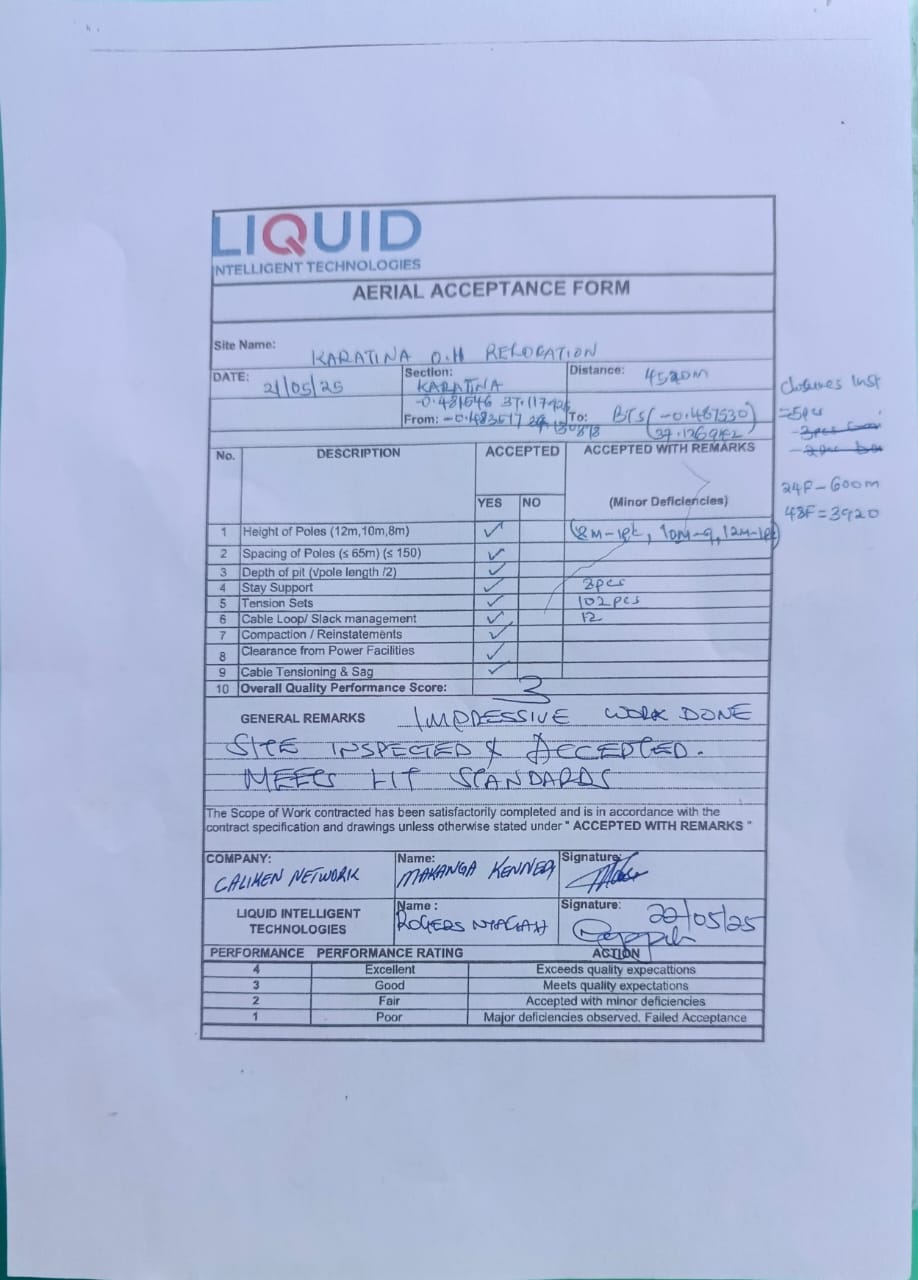 LIQUID
INTELLIGENT TECHNOLOGIES
AERIAL ACCEPTANCE FORM
Site Name: KARATINA O.H RELOCATION
DATE: 21/05/25 Section: KARATINA Distance: 4520M
-0.481546 37.117426
From: -0.483517 To: BTS (-0.487530)
closures inst
=5pcs
No. DESCRIPTION ACCEPTED ACCEPTED WITH REMARKS
YES NO (Minor Deficiencies)
24F - 600m
48F = 3920
1 Height of Poles (12m,10m,8m) ✓
2 Spacing of Poles (≤ 65m) (≤ 150) ✓
3 Depth of pit (√pole length /2) ✓
4 Stay Support ✓ pcs
5 Tension Sets ✓ 102pcs
6 Cable Loop/ Slack management ✓ 12
7 Compaction / Reinstatements ✓
8 Clearance from Power Facilities ✓
9 Cable Tensioning & Sag ✓
10 Overall Quality Performance Score: 3
GENERAL REMARKS IMPRESSIVE WORK DONE
SITE INSPECTED & ACCEPTED.
MEETS LIT STANDARDS
The Scope of Work contracted has been satisfactorily completed and is in accordance with the
contract specification and drawings unless otherwise stated under " ACCEPTED WITH REMARKS "
COMPANY: CALIKEN NETWORK Name: MAKANGA KENNEDY Signature:
LIQUID INTELLIGENT TECHNOLOGIES Name : ROGERS Signature: 22/05/25
PERFORMANCE PERFORMANCE RATING ACTION
4 Excellent Exceeds quality expecattions
3 Good Meets quality expectations
2 Fair Accepted with minor deficiencies
1 Poor Major deficiencies observed. Failed Acceptance